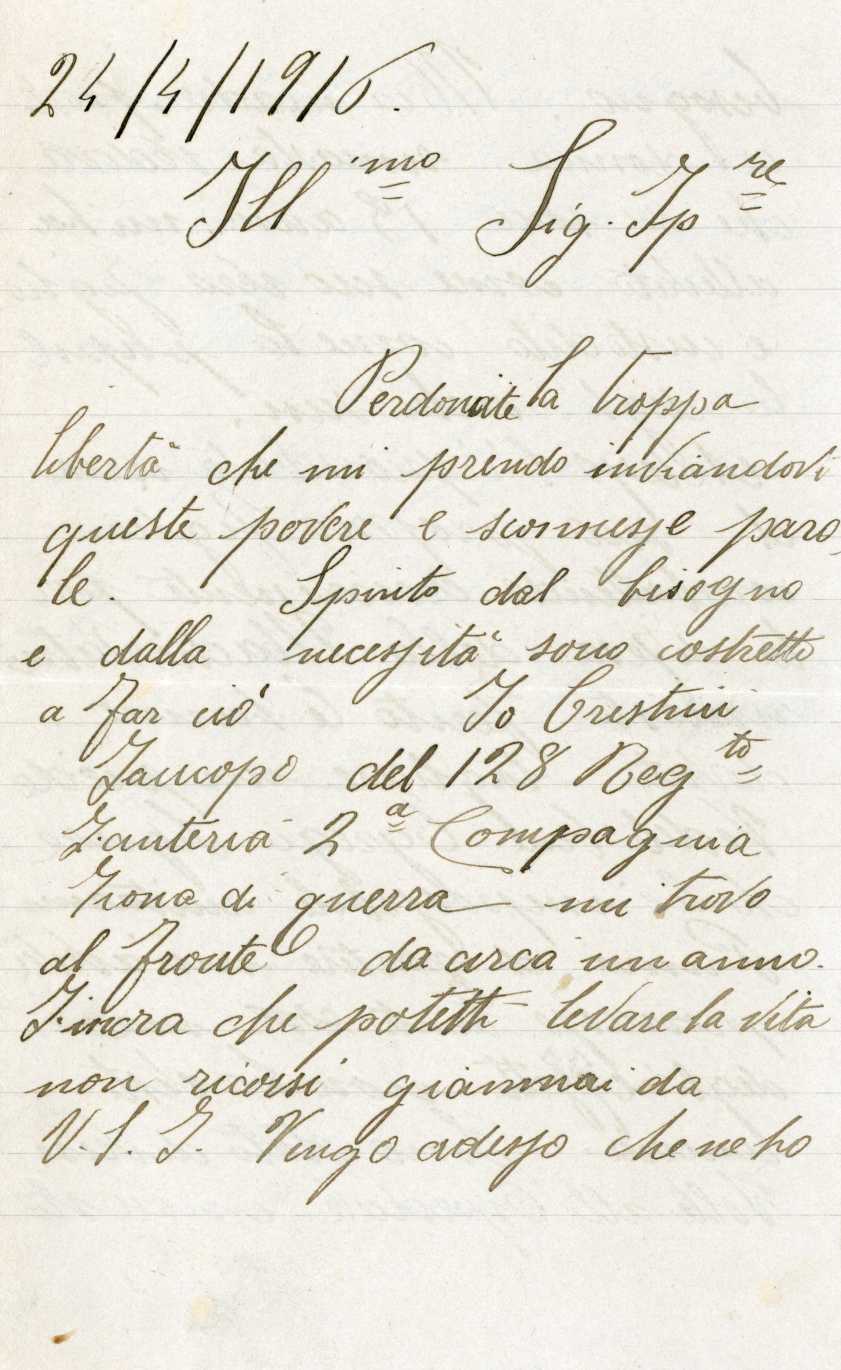 24/4/1916.
Ill.mo Sig. Ip re
Perdonate la troppa
libertà che mi prendo inviandovi
queste povere e sconnesse paro
le. Spinto dal bisogno
e dalla necessità sono costretto
a far ciò Io Crestini
Iaucopo del 128 Regto
Fanteria 2a Compagnia
Zona di guerra mi trovo
al fronte da circa un anno.
Finora che potetti levare la vita
non ricorsi giammai da
V. S. I. Vengo adesso che ne ho